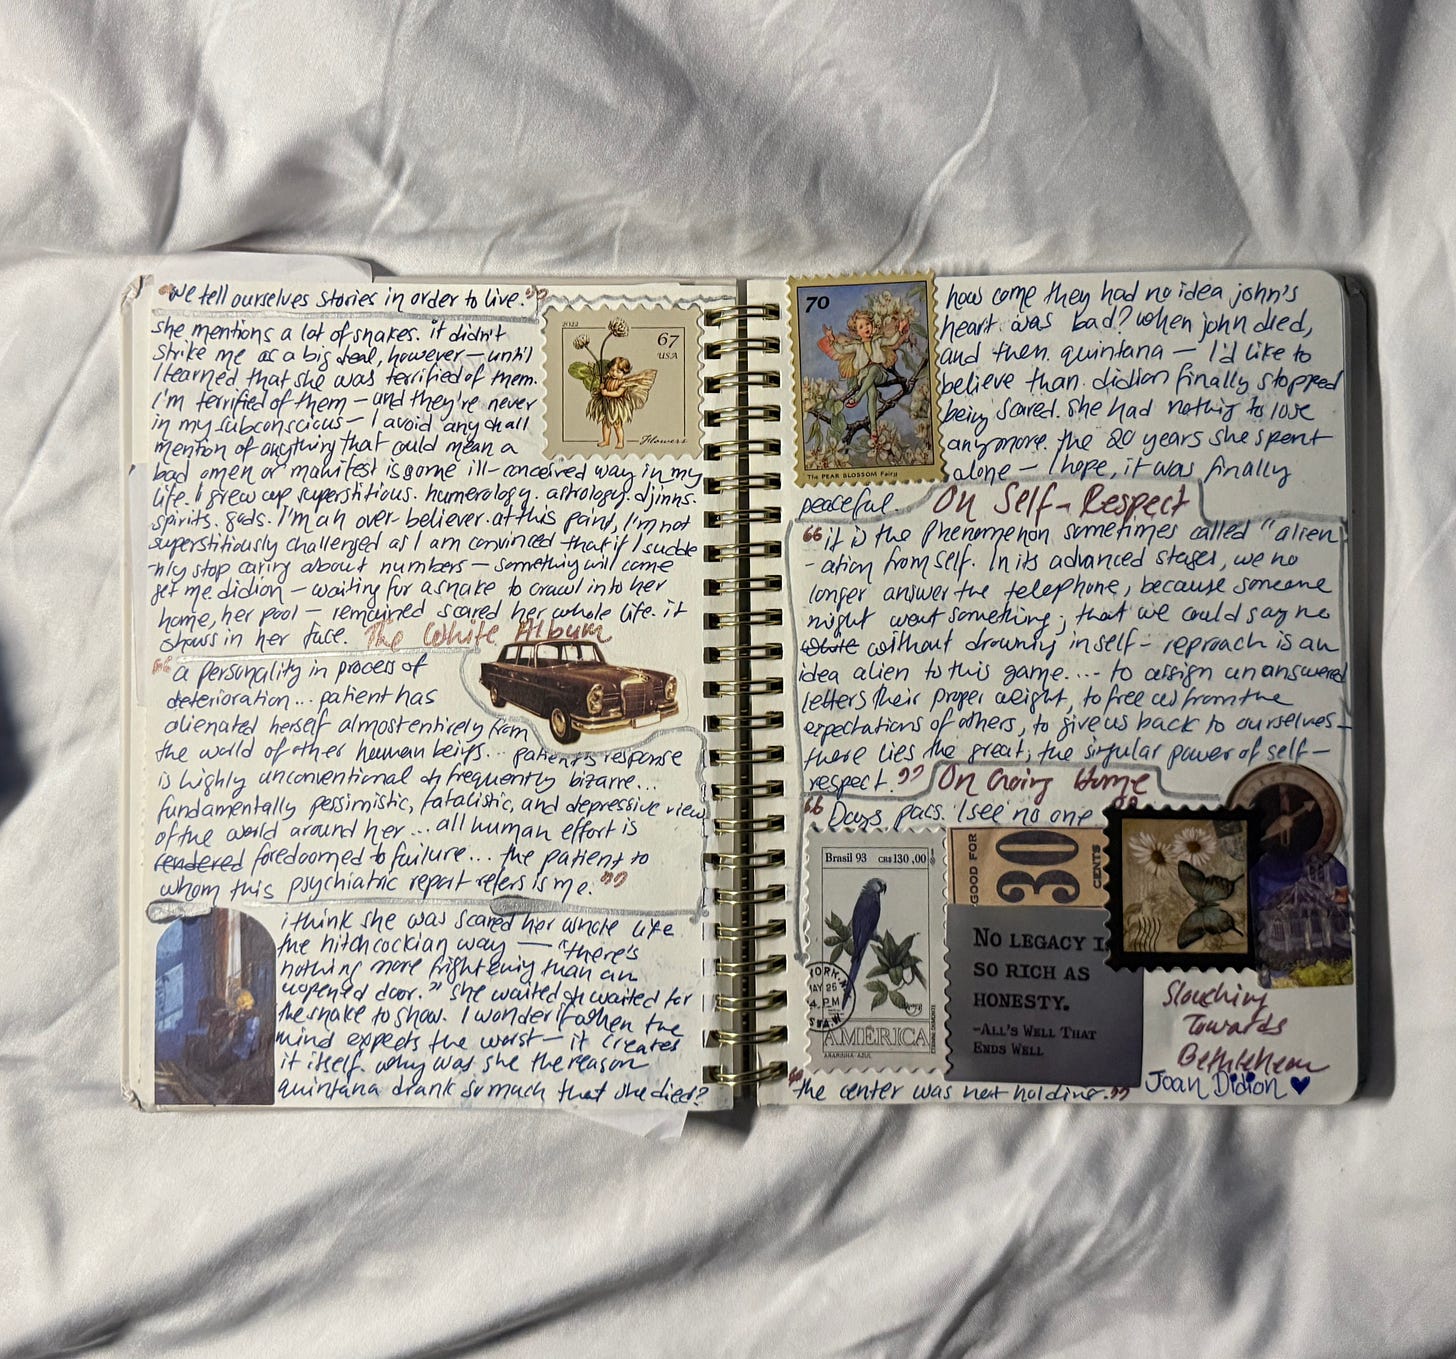 "we tell ourselves stories in order to live."
she mentions a lot of snakes. it didn't
strike me as a big deal, however — until
I learned that she was terrified of them.
I'm terrified of them — and they're never
in my subconscious — I avoid any & all
mention of anything that could mean a
bad omen or manifest is some ill-conceived way in my
life. I grew up superstitious. numerology. astrology. djinns.
spirits. gods. I'm an over-believer. at this point, I'm not
superstitiously challenged as I am convinced that if I sudde
-nly stop caring about numbers — something will come
get me. didion — waiting for a snake to crawl into her
home, her pool — remained scared her whole life. it
shows in her face. The White Album
2022
67
USA
Flowers
"a personality in process of
deterioration... patient has
alienated herself almost entirely from
the world of other human beings... patient's response
is highly unconventional & frequently bizarre...
fundamentally pessimistic, fatalistic, and depressive view
of the world around her... all human effort is
rendered foredoomed to failure... the patient to
whom this psychiatric report refers is me."
i think she was scared her whole life
the hitchcockian way — "there's
nothing more frightening than an
unopened door." she waited & waited for
the snake to show. I wonder if when the
mind expects the worst — it creates
it itself. why was she the reason
quintana drank so much that she died?
70
The PEAR BLOSSOM Fairy
how come they had no idea john's
heart was bad? when john died,
and then quintana — I'd like to
believe than didion finally stopped
being scared. she had nothing to lose
anymore. the 20 years she spent
alone — I hope, it was finally
peaceful. On Self-Respect
"it is the phenomenon sometimes called "alien-
-ation from self. In its advanced stages, we no
longer answer the telephone, because someone
might want something; that we could say no
without drowning in self-reproach is an
idea alien to this game.... to assign unanswered
letters their proper weight, to free us from the
expectations of others, to give us back to ourselves —
there lies the great, the singular power of self-
respect." On Going Home
"Days pass. I see no one."
Brasil 93 CR$ 130,00
AMÉRICA
ARARINHA-AZUL
GOOD FOR
30
CENTS
NO LEGACY I
SO RICH AS
HONESTY.
-ALL'S WELL THAT
ENDS WELL
Slouching
Towards
Bethlehem
Joan Didion
"the center was not holding."